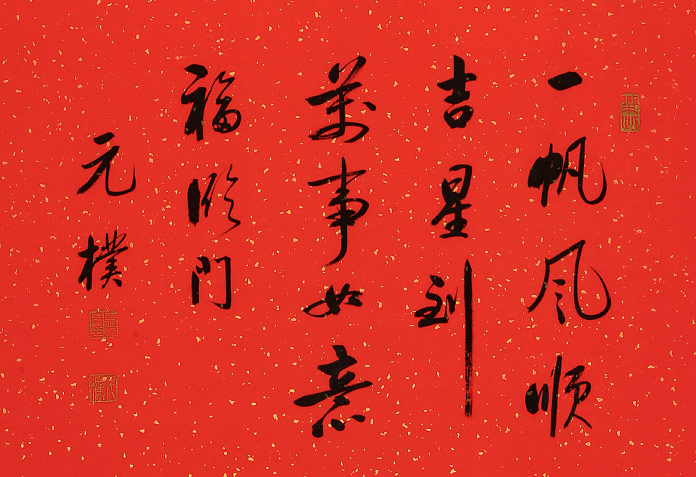 一帆风顺
吉星到
萬事如意
福临門
元樸